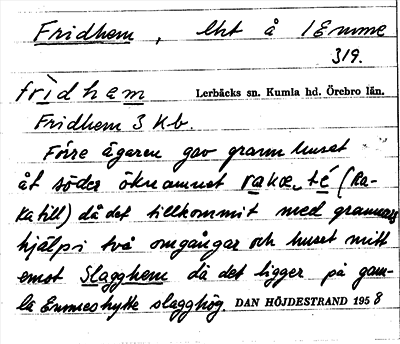 Fridhem, lht å 1 Emme
319.
frìdham Lerbäcks sn. Kumla hd. Örebro län.
Fridhem 3 Kb.
Förre ägaren gav grannhuset
åt söder öknamnet rakœ té (Ra-
ka till) då det tillkommit med grannars
hjälp i två omgångar och huset mitt
emot Slagghem då det ligger på gam-
la Emmeshytte slagghög. DAN HÖJDESTRAND 1958